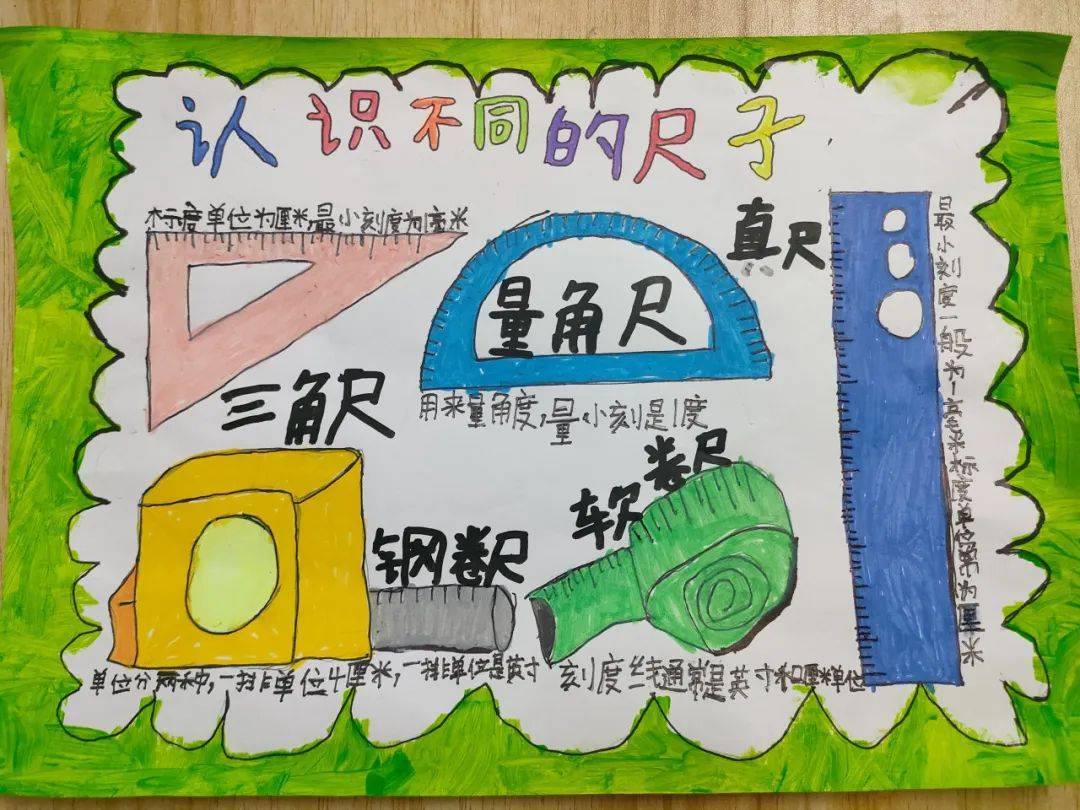 认识不同的尺子
标度单位为厘米,最小刻度为毫米
三角尺
量角尺
用来量角度,量小刻是1度
直尺
最小刻度一般为1毫米标度单位常为厘米
钢卷尺
单位分两种,一排单位是厘米,一排单位是英寸
软卷尺
刻度线通常是英寸和厘米单位